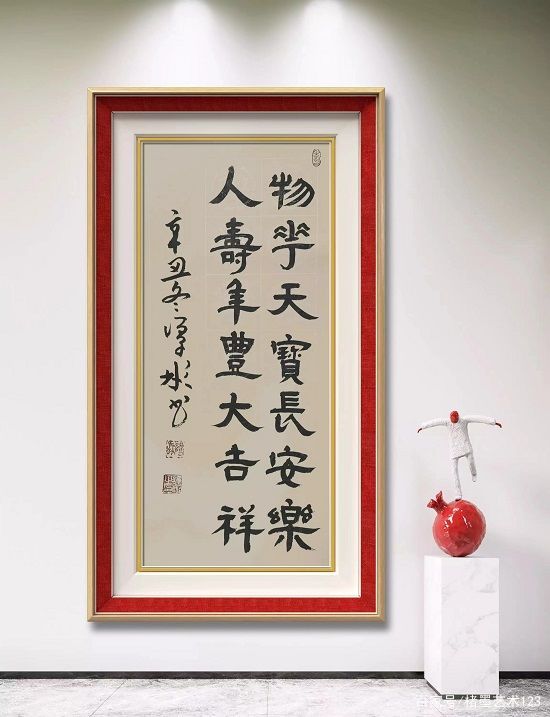 物華天寶長安樂
人壽年豐大吉祥
辛丑冬
百家号/楮墨艺术123